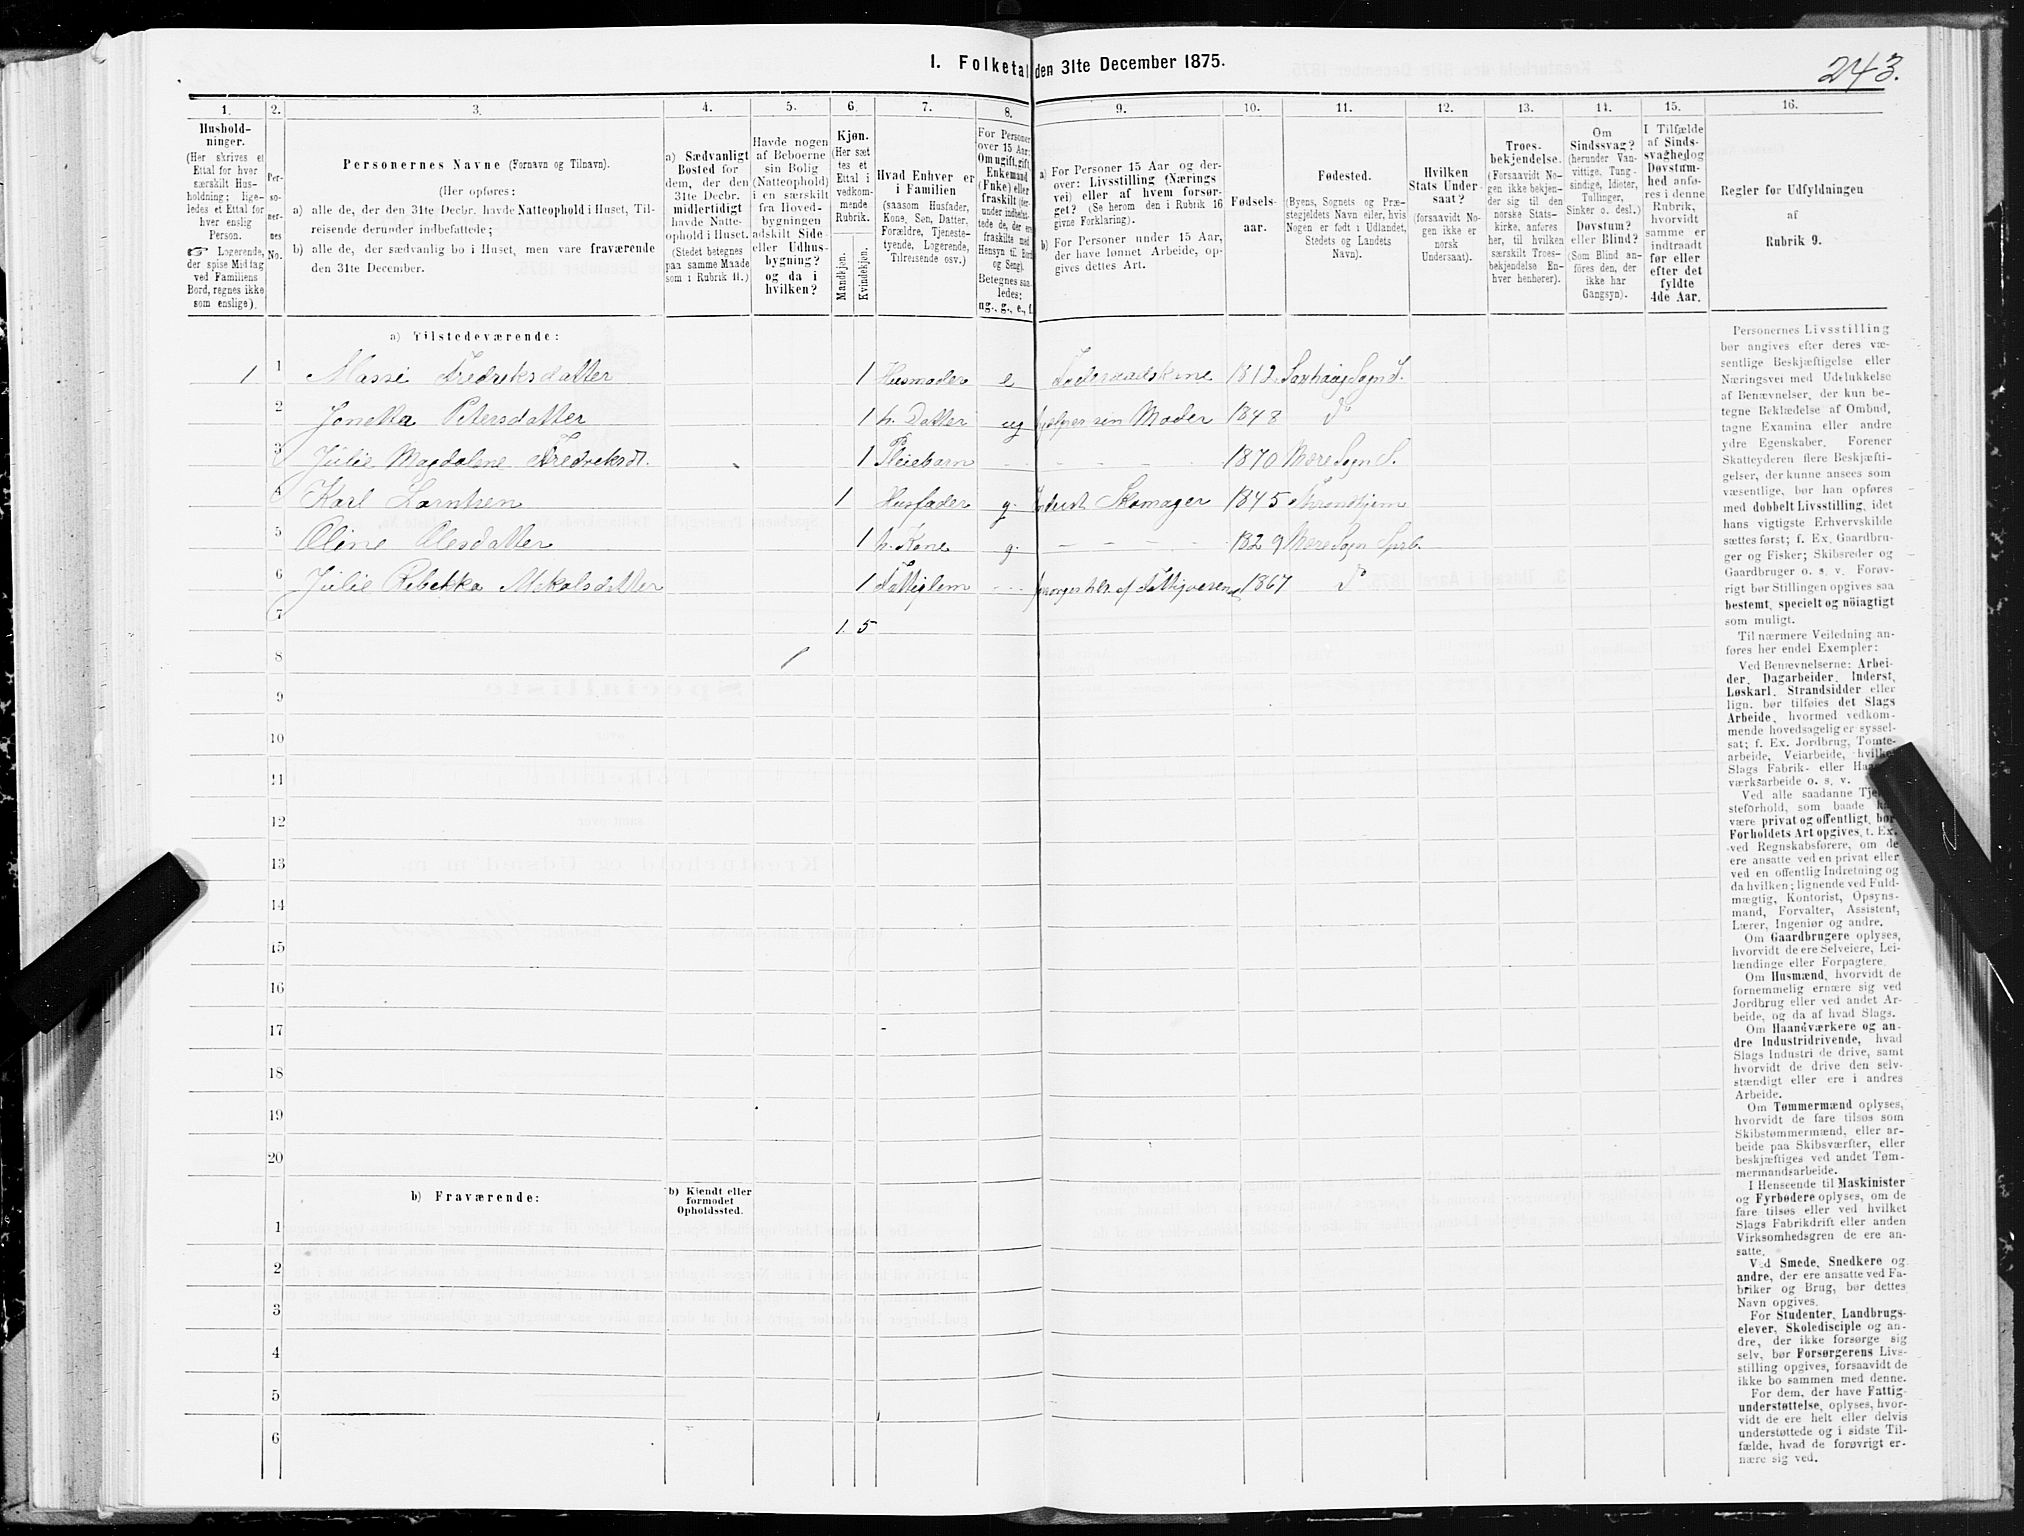 I. Folketal den 31te December 1875.
243.
1. 2. 3. 4. 5. 6. 7. 8. 9. 10. 11. 12. 13. 14. 15. 16.
Hushold-
ninger.
(Her skrives et
Ettal for hver
særskilt Hus-
holdning; lige-
ledes et Ettal for
hver enslig
Person.
☞ Logerende,
der spise Middag
ved Familiens
Bord, regnes ikke
som enslige).
Per-
soner-
nes
No.
Personernes Navne (Fornavn og Tilnavn).
(Her opføres:
a) alle de, der den 31te Decbr. havde Natteophold i Huset, Til-
reisende derunder indbefattede;
b) alle de, der sædvanlig bo i Huset, men vare fraværende
den 31te December.
a) Sædvanligt
Bosted for
dem, der den
31te Decbr.
midlertidigt
havde Natte-
ophold i Huset.
(Stedet betegnes
paa samme Maade
som i Rubrik 11.)
Havde nogen
af Beboerne
sin Bolig
(Natteophold)
i en særskilt
fra Hoved-
bygningen
adskilt Side-
eller Udhus-
bygning?
og da i
hvilken?
Kjøn.
(Her sæt-
tes et
Ettal i
vedkom-
mende
Rubrik.
Mandkjøn.
Kvindekjøn.
Hvad Enhver er
i Familien
(saasom Husfader,
Kone, Søn, Datter,
Forældre, Tjeneste-
tyende, Logerende,
Tilreisende osv.)
For Personer
over 15 Aar:
Om ugift, gift,
Enkemand
(Enke) eller
fraskilt (der-
under indbefat-
tede de, der ere
fraskilte med
Hensyn til Bord
og Seng).
Betegnes saa-
ledes:
ug., g., e., f.
a) For Personer 15 Aar og der-
over: Livsstilling (Nærings-
vei) eller af hvem forsør-
get? (Se herom den i Rubrik 16
givne Forklaring).
b) For Personer under 15 Aar,
der have lønnet Arbeide, op-
gives dettes Art.
Fødsels-
aar.
Fødested.
(Byens, Sognets og Præ-
stegjeldets Navn eller, hvis
Nogen er født i Udlandet,
Stedets og Landets
Navn).
Hvilken
Stats Under-
saat?
(forsaavidt No-
gen ikke er
norsk
Undersaat).
Troes-
bekjendelse.
(Forsaavidt No-
gen ikke bekjen-
der sig til den
norske Stats-
kirke, anføres
her, til hvilken
særskilt Troes-
bekjendelse En-
hver henhører).
Om
Sindssvag?
(herunder Van-
vittige, Tung-
sindige, Idioter,
Tullinger,
Sinker o. desl.)
Døvstum?
eller Blind?
(Som Blind an-
føres den, der
ikke har
Gangsyn).
I Tilfælde
af Sinds-
svaghed og
Døvstum-
hed anfø-
res i denne
Rubrik,
hvorvidt
samme er
indtraadt
før eller
efter det
fyldte
4de Aar.
Regler for Udfyldningen
af
Rubrik 9.
a) Tilstedeværende:
1 1 Massi Fredriksdatter 1 Husmoder e 1812
2 Jonetta Petersdatter 1 h. Datter ug hjelper sin Moder 1848 do
3 Julie Magdalene Fredriksdt. 1 Pleiebarn 1870 Mære Sogn S.
4 Karl Larntsen 1 Husfader g. Inderst Skomager 1845 Throndhjem
5 Oline Olesdatter 1 h. Kone g. 1829 Mære Sogn Sprb.
6 Julie Rebekka Mikalsdatter 1 Fattiglem forsørges af Fattigvesenet 1867 do
7 1. 5
8
9
10
11
12
13
14
15
16
17
18
19
20
b) Fraværende:
b) Kjendt eller
formodet
Opholdssted.
1
2
3
4
5
6
Personernes Livsstilling
bør angives efter deres væ-
sentlige Beskjæftigelse eller
Næringsvei med Udelukkelse
af Benævnelser, der kun be-
tegne Beklædelse af Ombud,
tagne Examina eller andre
ydre Egenskaber. Forener
Skatteyderen flere Beskjæfti-
gelser, der kunne ansees som
væsentlige, bør han opføres
med dobbelt Livsstilling, idet
hans vigtigste Erhvervskilde
sættes først; f. Ex. Gaardbru-
ger og Fisker; Skibsreder og
Gaardbruger o. s. v. Forøv-
rigt bør Stillingen opgives saa
bestemt, specielt og nöiagtigt
som muligt.
Til nærmere Veiledning an-
føres her endel Exempler:
Ved Benævnelserne: Arbei-
der, Dagarbeider, Inderst,
Løskarl, Strandsidder eller
lign. bør tilføies det Slags
Arbeide, hvormed vedkom-
mende hovedsagelig er syssel-
sat; f. Ex. Jordbrug, Tomte-
arbeide, Veiarbeide, hvilket
Slags Fabrik- eller Haand-
værksarbeide o. s. v.
Ved alle saadanne Tjene-
steforhold, som baade kan
være privat og offentligt, bør
Forholdets Art opgives, t. Ex.
ved Regnskabsførere, om de
ere ansatte ved en privat eller
ved en offentlig Indretning og
da hvilken; lignende ved Fuld-
mægtig, Kontorist, Opsyns-
mand, Forvalter, Assistent,
Lærer, Ingeniør og andre.
Om Gaardbrugere oplyses,
hvorvidt de ere Selveiere, Lei-
lændinge eller Forpagtere.
Om Husmænd, hvorvidt de
fornemmelig ernære sig ved
Jordbrug eller ved andet Ar-
beide, og da af hvad Slags.
Om Haandværkere og an-
dre Industridrivende, hvad
Slags Industri de drive, samt
hvorvidt de drive den selv-
stændigt eller ere i andres
Arbeide.
Om Tømmermænd oplyses,
hvorvidt de fare tilsøs som
Skibstømmermænd, eller ar-
beide paa Skibsværfter, eller
beskjæftiges ved andet Tøm-
mermandsarbeide.
I Henseende til Maskinister
og Fyrbødere oplyses, om de
fare tilsøs eller ved hvilket
Slags Fabrikdrift eller anden
Virksomhedsgren de ere an-
satte.
Ved Smede, Snedkere og
andre, der ere ansatte ved Fa-
briker og Brug, bør dettes
Navn opgives.
For Studenter, Landbrugs-
elever, Skoledisciple og an-
dre, der ikke forsørge sig
selv, bør Forsørgerens Livs-
stilling opgives, forsaavidt de
ikke bo sammen med denne.
For dem, der have Fattig-
understøttelse, oplyses, hvor-
vidt de ere helt eller delvis
understøttede og i sidste Til-
fælde, hvad de forøvrigt er-
nære sig ved.